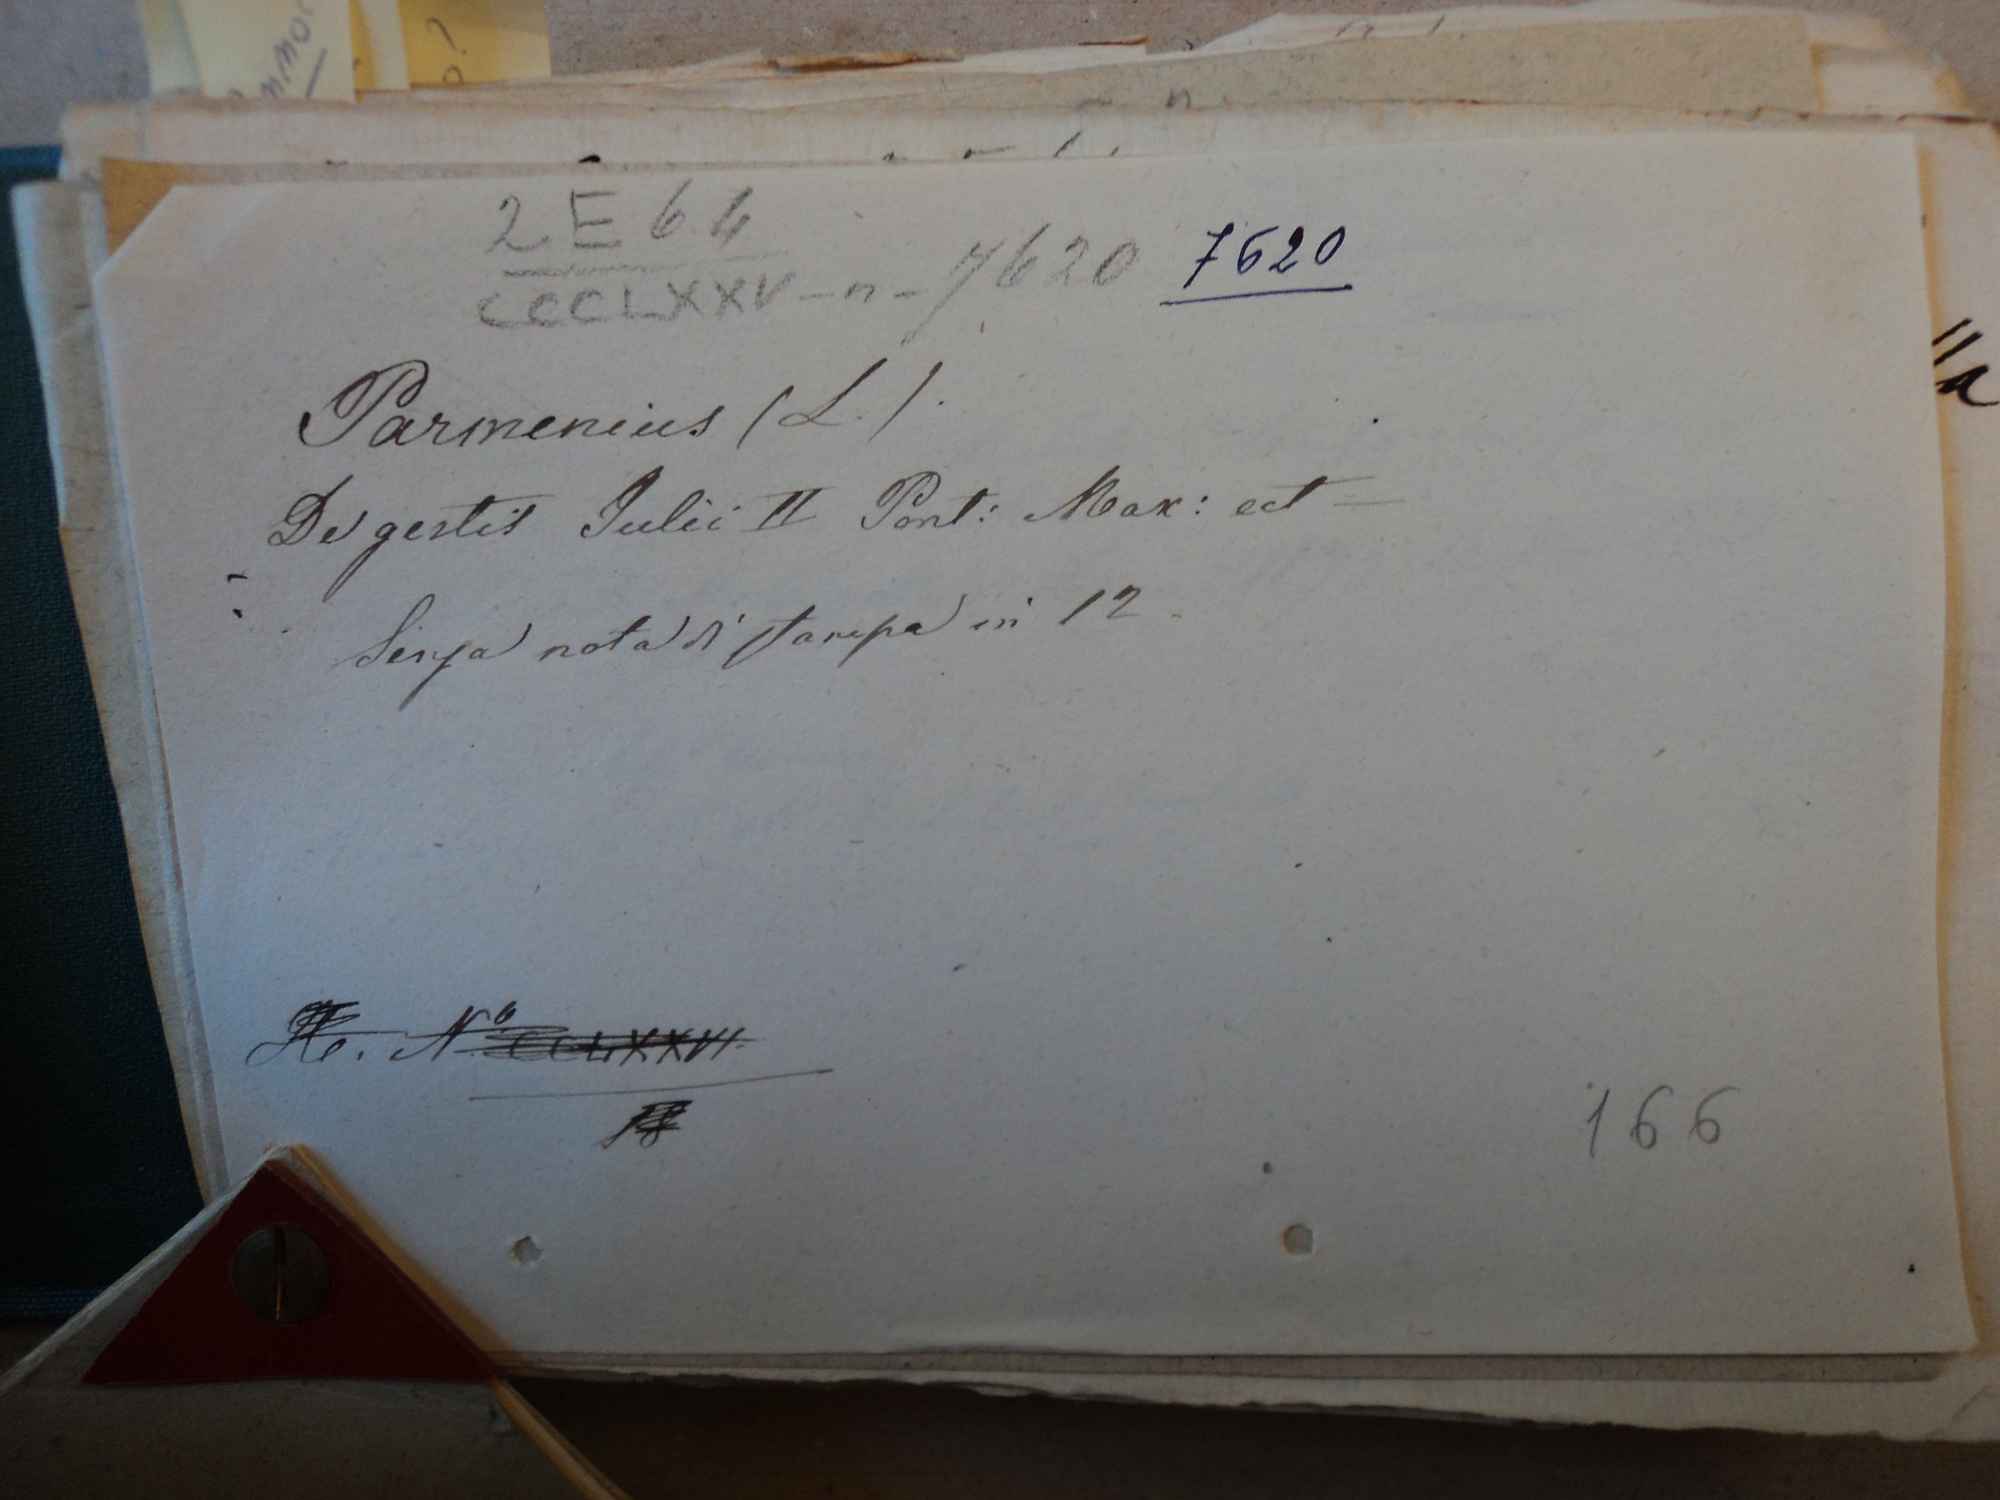 2 E 64
CCCLXXV - n - 7620 7620
Parmenius (L.).
De gestis Julii II Pont: Max: ect =
Senza nota di stampa in 12.
N° CCLXXVI.
166